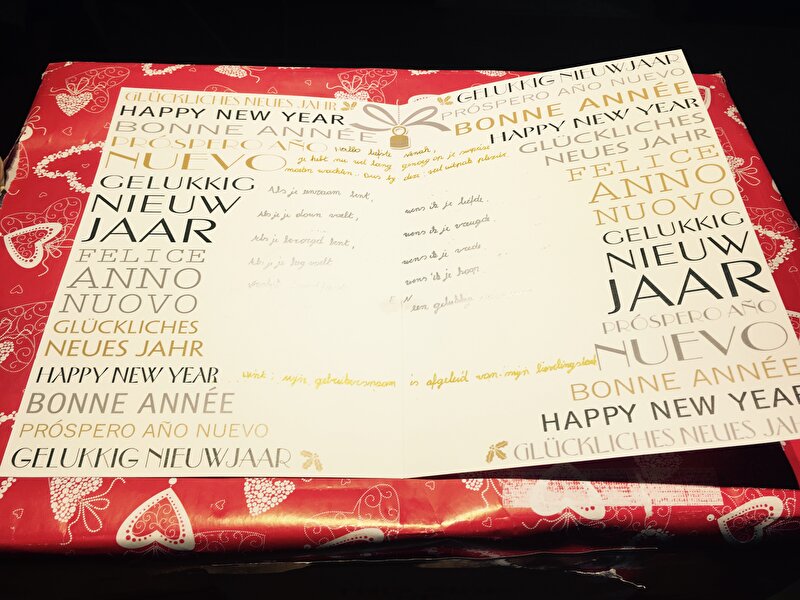 GLÜCKLICHES NEUES JAHR
HAPPY NEW YEAR
BONNE ANNÉE
PRÓSPERO AÑO
NUEVO
GELUKKIG
NIEUW
JAAR
FELICE
ANNO
NUOVO
GLÜCKLICHES
NEUES JAHR
HAPPY NEW YEAR
BONNE ANNÉE
PRÓSPERO AÑO NUEVO
GELUKKIG NIEUWJAAR
Hallo liefste
je hebt nu wel lang genoeg op je surprise
moeten wachten. Dus bij deze: veel uitpak plezier
Als je eenzaam bent, wens ik je liefde.
Als je je down voelt, wens ik je vreugde
Als je bezorgd bent, wens ik je vrede
Als je je leeg voelt wens ik je hoop.
een gelukkig
hint: mijn gebruikersnaam is afgeleid van mijn lievelings
GELUKKIG NIEUWJAAR
PRÓSPERO AÑO NUEVO
BONNE ANNÉE
HAPPY NEW YEAR
GLÜCKLICHES
NEUES JAHR
FELICE
ANNO
NUOVO
GELUKKIG
NIEUW
JAAR
PRÓSPERO AÑO
NUEVO
BONNE ANNÉE
HAPPY NEW YEAR
GLÜCKLICHES NEUES JAH